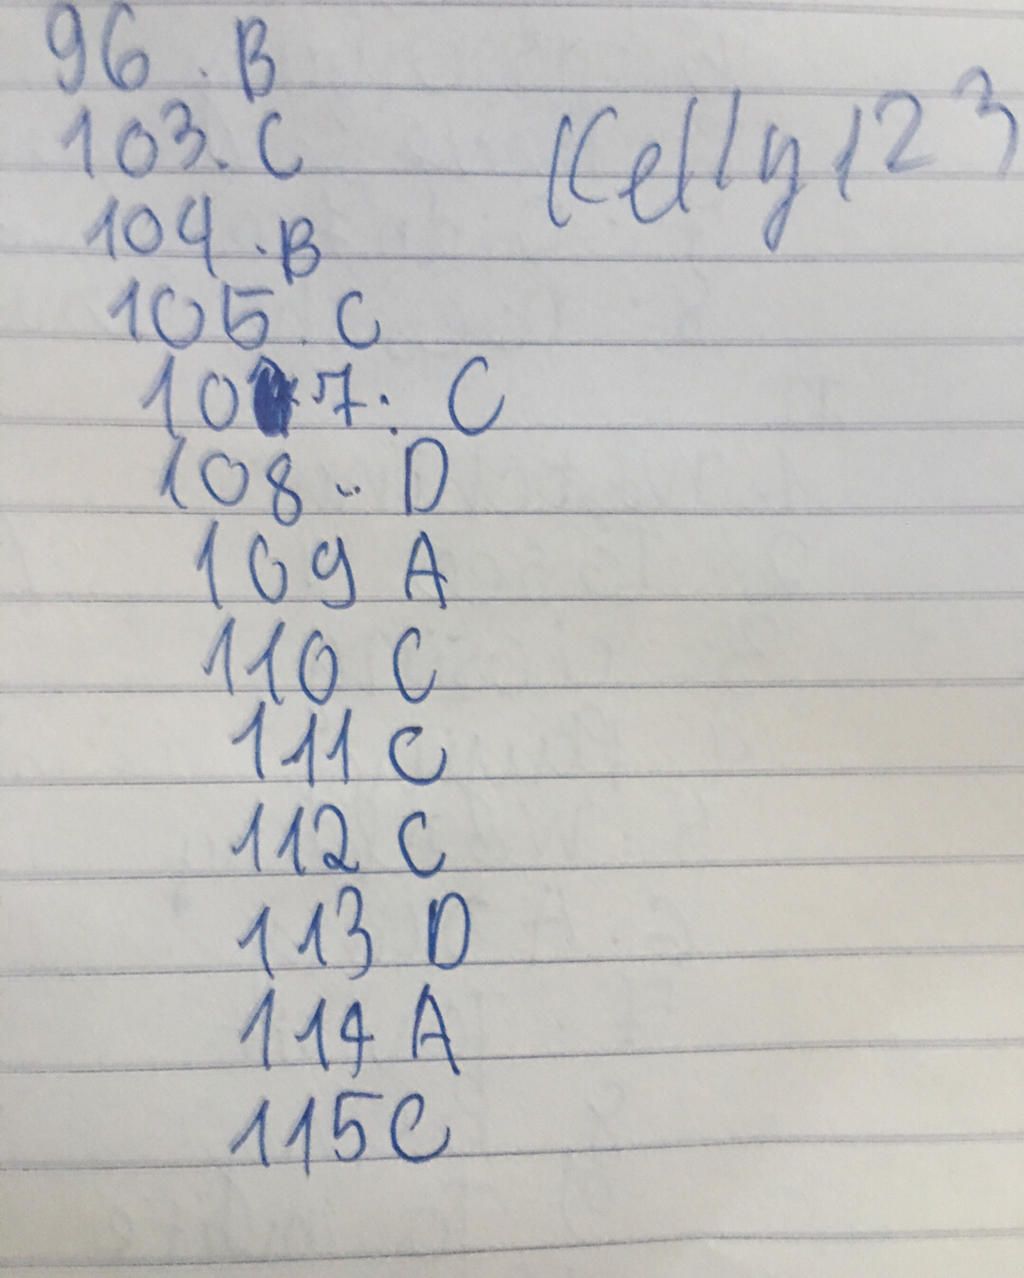 96. B
103. C
Kelly 123
104. B
105. C
107: C
108.. D
109 A
110 C
111 C
112 C
113 D
114 A
115 C